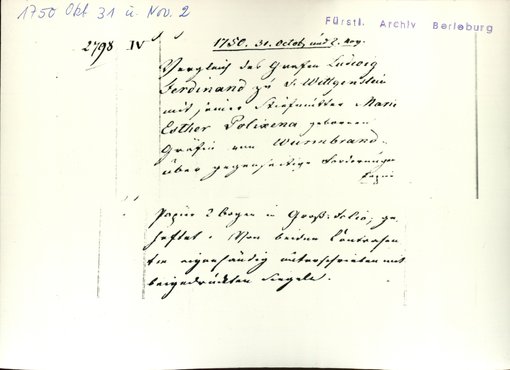 1750 Okt 31 u. Nov. 2
Fürstl. Archiv Berleburg
2798 IV
1750. 31. Octob. und 2. Nov.
Vergleich des Grafen Ludwig
Ferdinand zu S. Wittgenstein
mit seiner Stiefmutter Marie
Esther Polixena geborenen
Gräfin von Wurmbrand
über gegenseitige Forderungen
Papier 2 Bogen in Groß-Folio, ge
heftet. Von beiden Contrahen
ten eigenhändig unterschrieben mit
beigedrückten Siegeln.